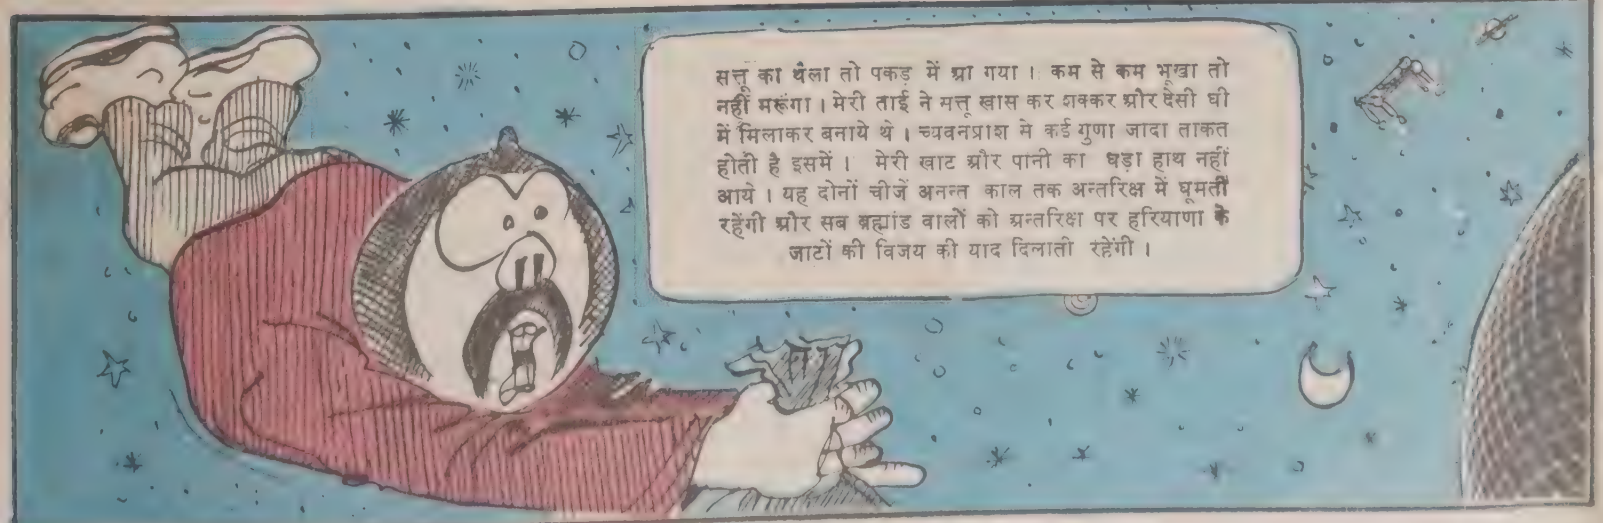 सत्तू का थैला तो पकड़ में आ गया । कम से कम भूखा तो
नहीं मरूंगा । मेरी ताई ने सत्तू खास कर शक्कर और देसी घी
में मिलाकर बनाये थे । च्यवनप्राश से कई गुणा जादा ताकत
होती है इसमें । मेरी खाट और पानी का घड़ा हाथ नहीं
आये । यह दोनों चीजें अनन्त काल तक अन्तरिक्ष में घूमती
रहेंगी और सब ब्रह्मांड वालों को अन्तरिक्ष पर हरियाणा के
जाटों की विजय की याद दिलाती रहेंगी ।